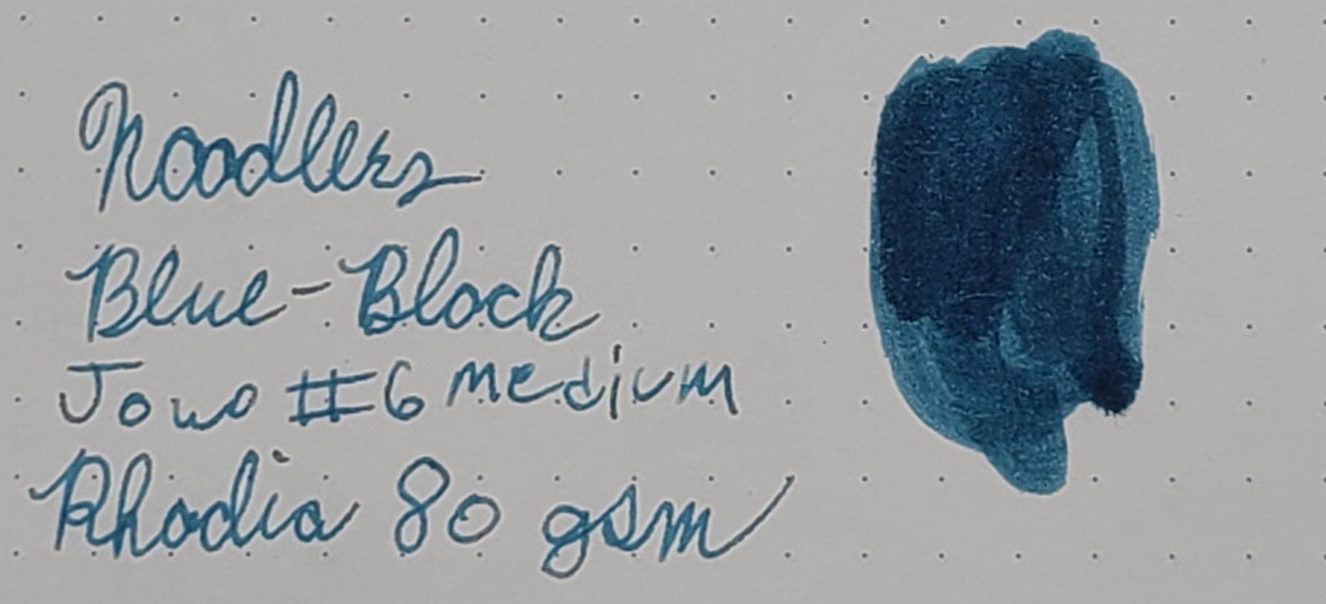 Noodlers
Blue-Black
Jowo #6 medium
Rhodia 80 gsm